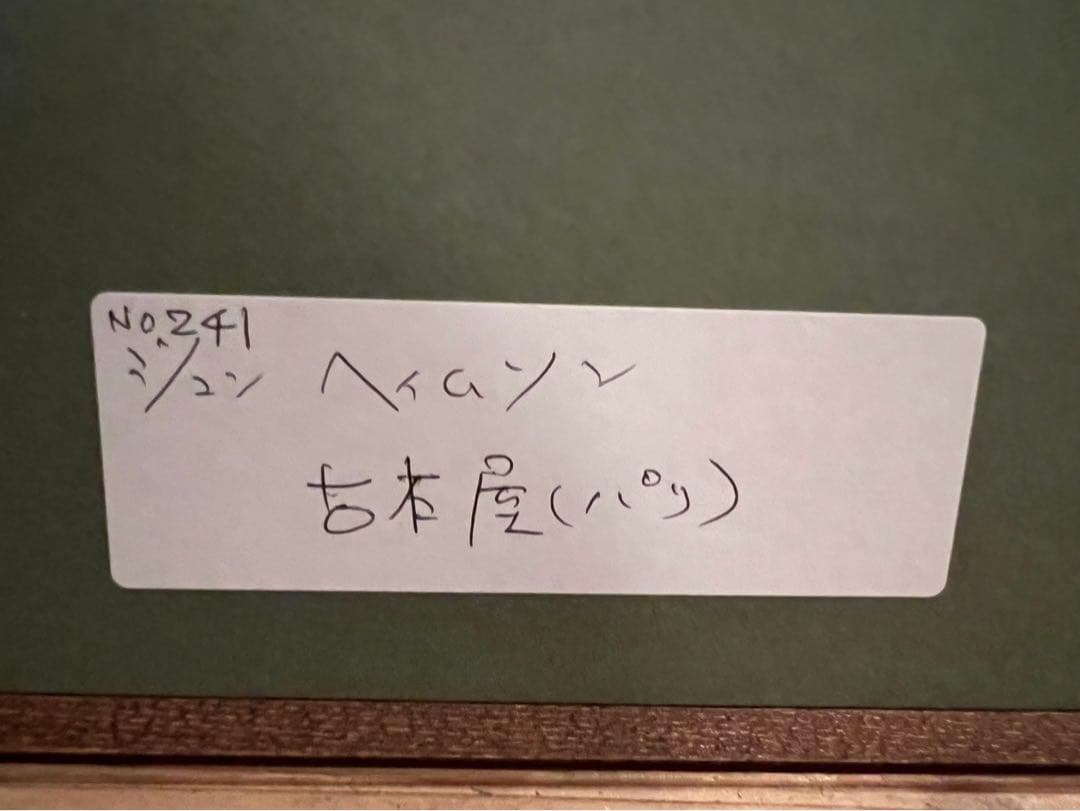 No.241
ジョン ヘイムソン
古本屋(パリ)